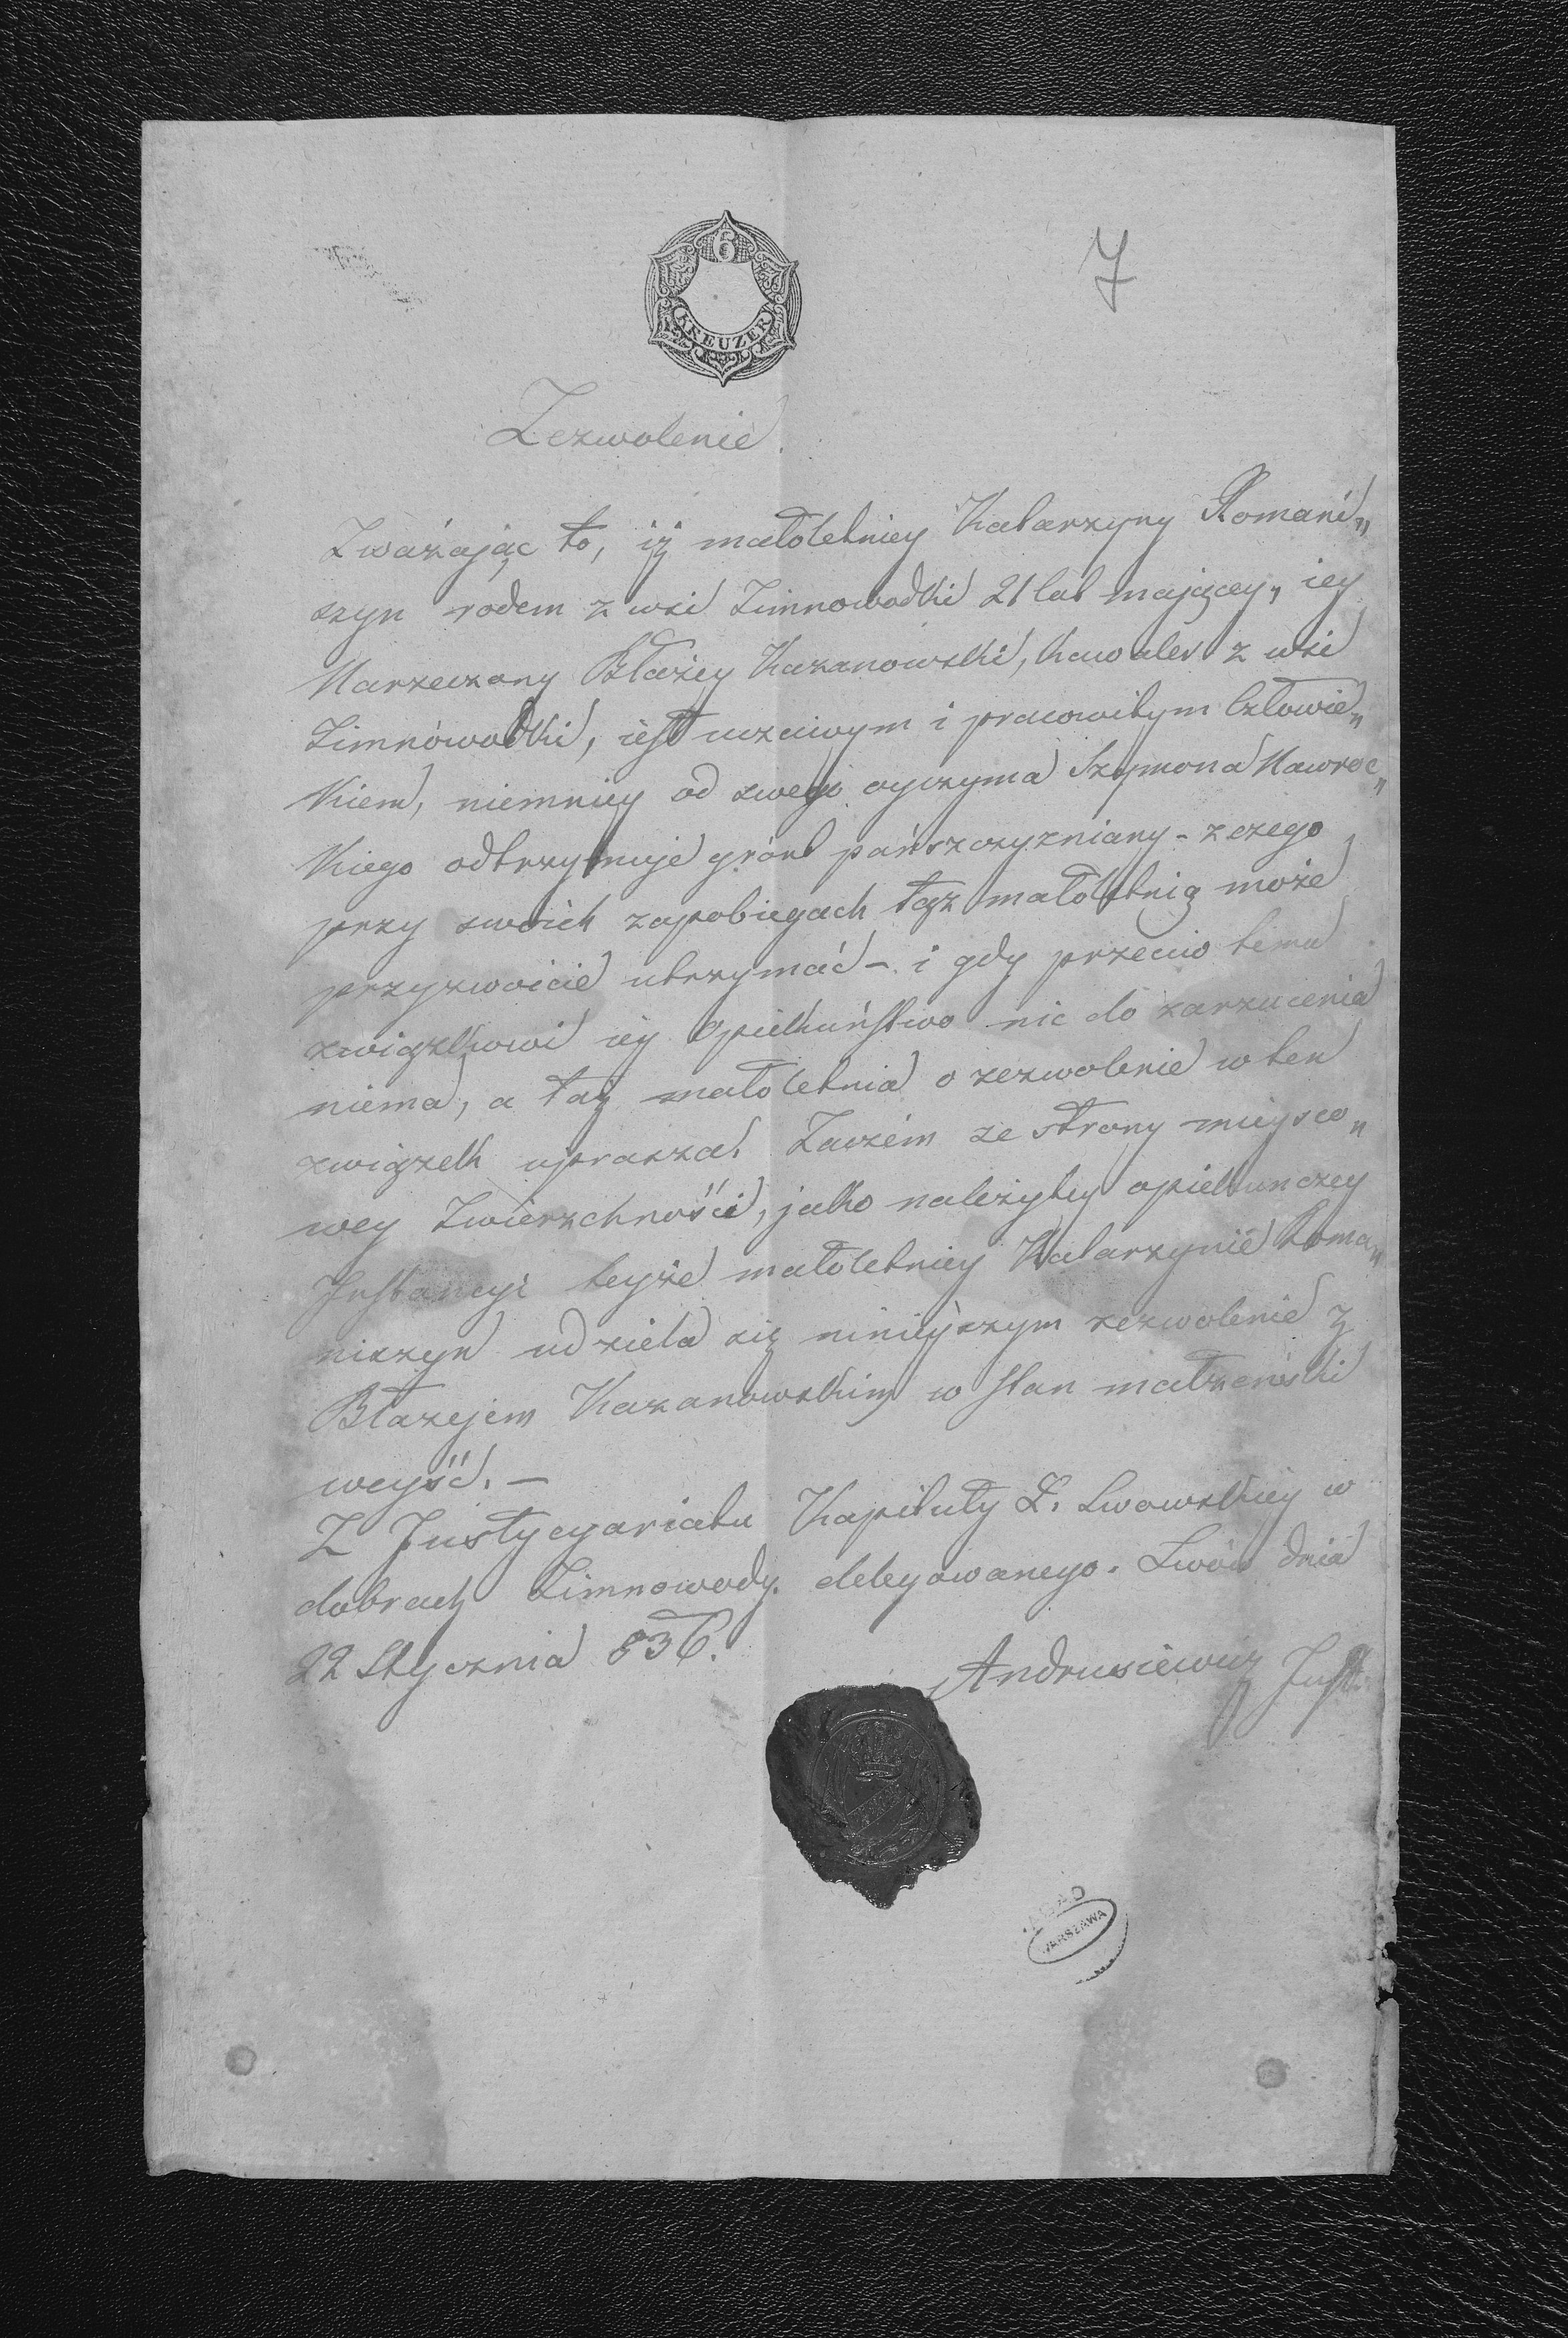 6
KREUZER
7
Zezwolenie.
Zważając to, iż małoletniey Katarzyny Romani„
szyn rodem z wsi Zimnowodki 21 lat mającey, iey
Narzeczony Błażey Kazanowski, kawaler z wsi
Zimnówodki, iest uczciwym i pracowitym Człowie„
kiem, niemniey od swego oyczyma Szymona Nawroc„
kiego odtrzymuje grónt pańszczyzniany - z czego
przy swoich zapobiegach tąż małoletnią może
przyzwoicie utrzymać - i gdy przeciw temu
związkowi iey Opiekuństwo nic do zarzucenia
niema, a taż małoletnia o zezwolenie w ten
związek uprasza. Zaczém ze strony mieysco„
wey Zwierzchności, jako należytey opiekunczey
Instancyi teyże małoletniey Katarzynie Roma„
niszyn udziela się ninieyszym zezwolenie z
Błazejem Kazanowskim w stan małżeński
weyść. -
Z Justycyariatu Kapituły Ł. Lwowskiey w
dobrach Zimnowody delegowanego. Lwów dnia
22 Stycznia 836.
Andrusiewicz Just.
AGAD
WARSZAWA